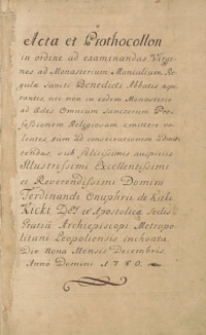 Acta et Prothocollon
in ordine ad examinandas Virgi-
nes ad Monasterium Monialium Re-
gulæ Sancti Benedicti Abbatis aspi-
rantes, nec non in eodem Monasterio
ad Ædes Omnium Sanctorum Pro-
fessionem Religiosam emittere vo-
lentes, tum ad consecrationem admit-
tendas, sub felicissimis auspiciis
Illustrissimi Excellentissimi
et Reverendissimi Domini
Ferdinandi Onuphrii de Kitki
Kicki, DEI et Apostolicæ Sedis
Gratiâ Archiepiscopi Metropo-
litani Leopoliensis inchoata
Die Nona Mensis Decembris
Anno Domini 1780.